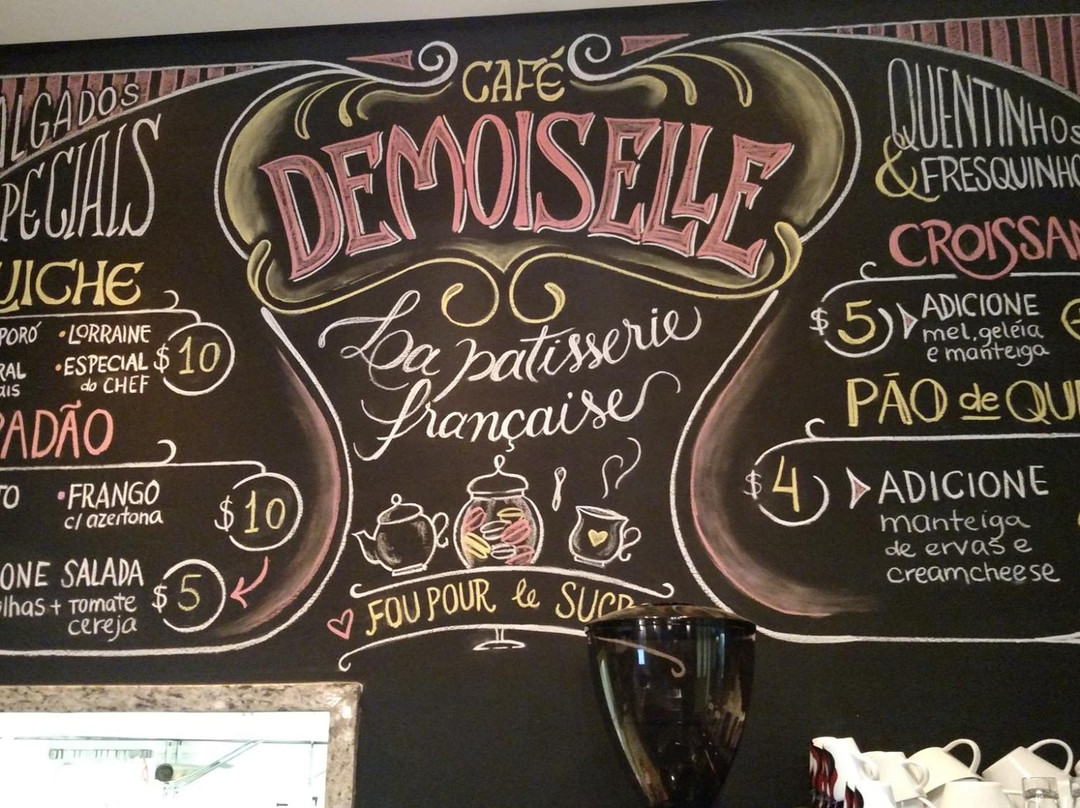 CAFÉ
DEMOISELLE
La patisserie
française
FOU POUR le
ALGADOS
PECIAIS
UICHE
PORÓ • LORRAINE
RAL • ESPECIAL
ais do CHEF
$ 10
PADÃO
TO • FRANGO
c/ azertona
$ 10
ONE SALADA
lhas + TOMATE
cereja
$ 5
QUENTINHOS
& FRESQUINHO
CROISSAN
$ 5 ADICIONE
mel, geléia
e manteiga
PÃO de QUE
$ 4 ADICIONE
manteiga
de ervas e
creamcheese